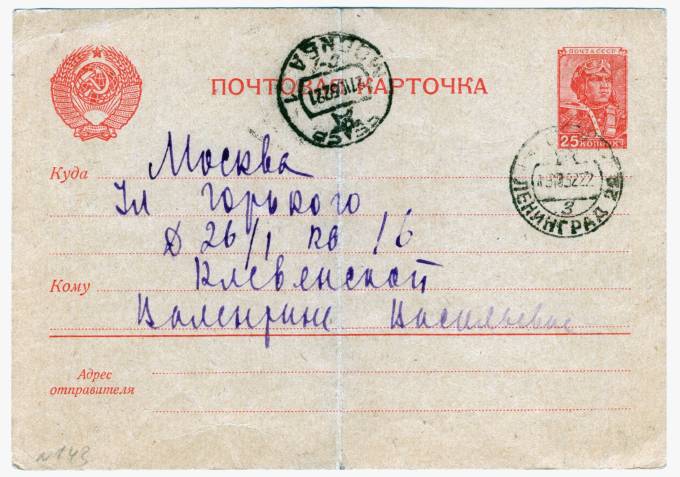 ПОЧТА СССР
ПОЧТОВАЯ КАРТОЧКА
25 КОПЕЕК
МОСКВА
ЛЕНИНГРАД 22
3
Куда Москва
Ул Горького
Д 26/1 кв 16
Кому Клевенской
Валентине Васильевне
Адрес
отправителя
№143